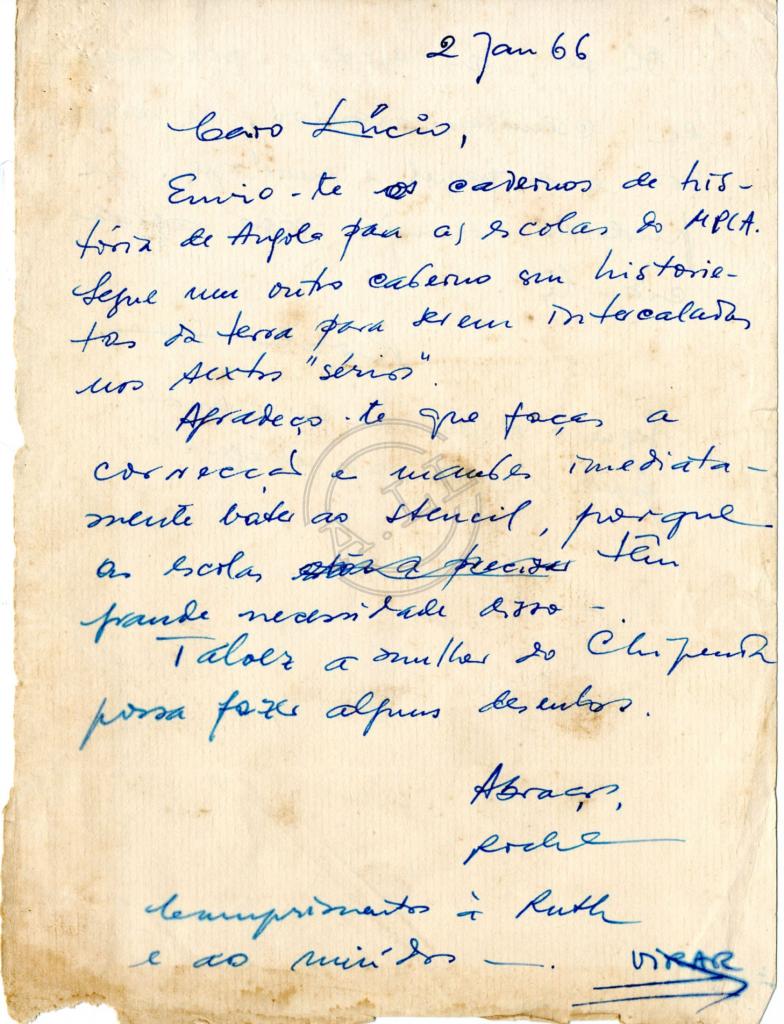 2 Jan 66
Caro Lúcio,
Envio-te os cadernos de his-
tória de Angola para as escolas do MPLA.
Segue um outro caderno com historie-
tas da terra para serem intercaladas
nos textos "sérios".
Agradeço-te que faças a
correcção e mandes imediata-
mente bater ao stencil, porque
as escolas estão a precisar têm
grande necessidade disso -
Talvez a mulher do Chipenda
possa fazer alguns desenhos.
Abraços,
Cumprimentos à Ruth
e ao miúdos -.
VIRAR
A.L.H